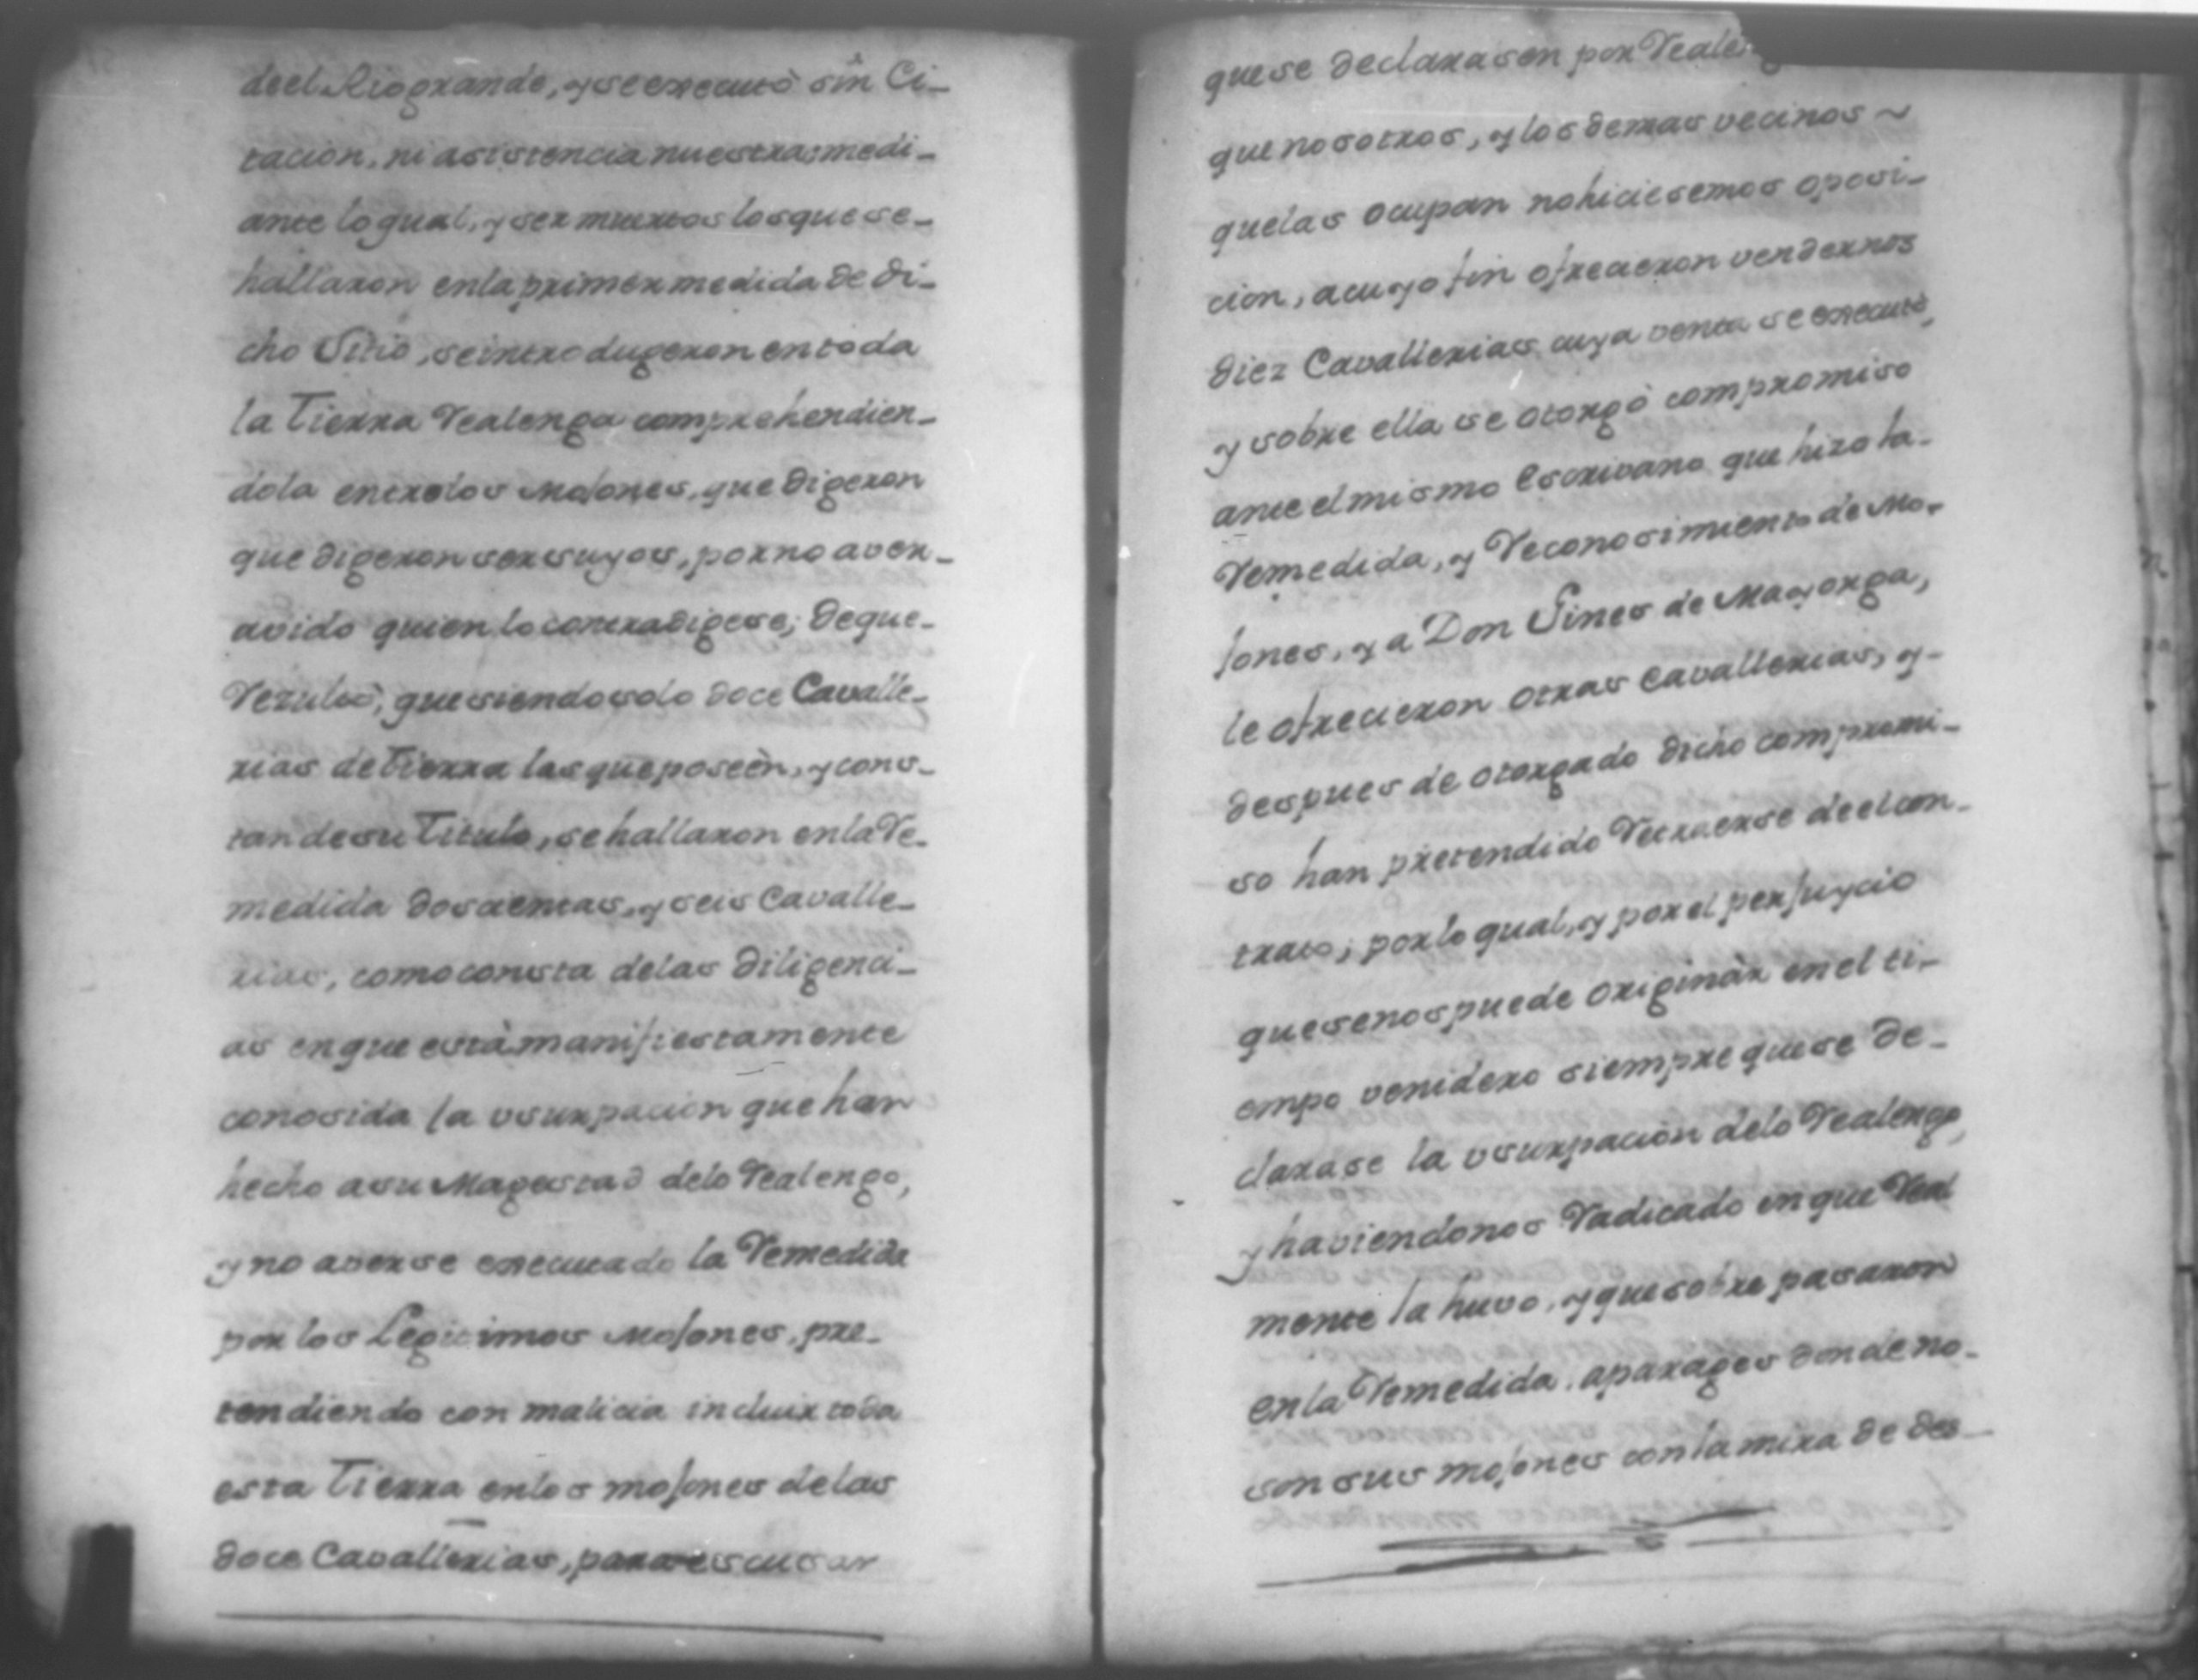 deel Riogrande, y se executò sin Ci-
tacion, ni asistencia nuestras medi-
ante lo qual, y ser muertos los que se-
hallaron en la primer medida de di-
cho Sitio, se introdugeron en toda
la Tierra Realenga comprehendien-
dola entre los Mojones, que digeron
que digeron ser suyos, por no aver-
avido quien lo contradigese; de que-
Rezultò, que siendo solo doce Cavalle-
rias de Tierra las que poseèn, y cons-
tan de su Titulo, se hallaron en la Re-
medida doscientas, y seis Cavalle-
rias, como consta de las diligenci-
as en que està manifiestamente
conosida la vsurpacion que han
hecho a su Magestad delo Realengo,
y no averse executado la Remedida
por los Legitimos Mojones, pre-
tendiendo con malicia incluir toda
esta Tierra en los mojones de las
doce Cavallerias, para escusar
que se declarasen por
que nosotros, y los demas vecinos ~
que las ocupan no hiciesemos oposi-
cion, a cuyo fin ofrecieron vendernos
diez Cavallerias cuya venta se executò,
y sobre ella se otorgò compromiso
ante el mismo Escrivano que hizo la-
Remedida, y Reconosimiento de Mo-
jones, y a Don Gines de Mayorga,
le ofrecieron otras Cavallerias, y-
despues de otorgado dicho compromi-
so han pretendido Retraerse de el con-
trato; por lo qual, y por el perjuycio
que se nos puede originàr en el ti-
empo venidero siempre que se de-
clarase la vsurpacion delo Realengo,
y haviendonos Radicado en que Real
mente la huvo, y que sobre pasaron
en la Remedida aparages donde no-
son sus mojones con la mira de des-